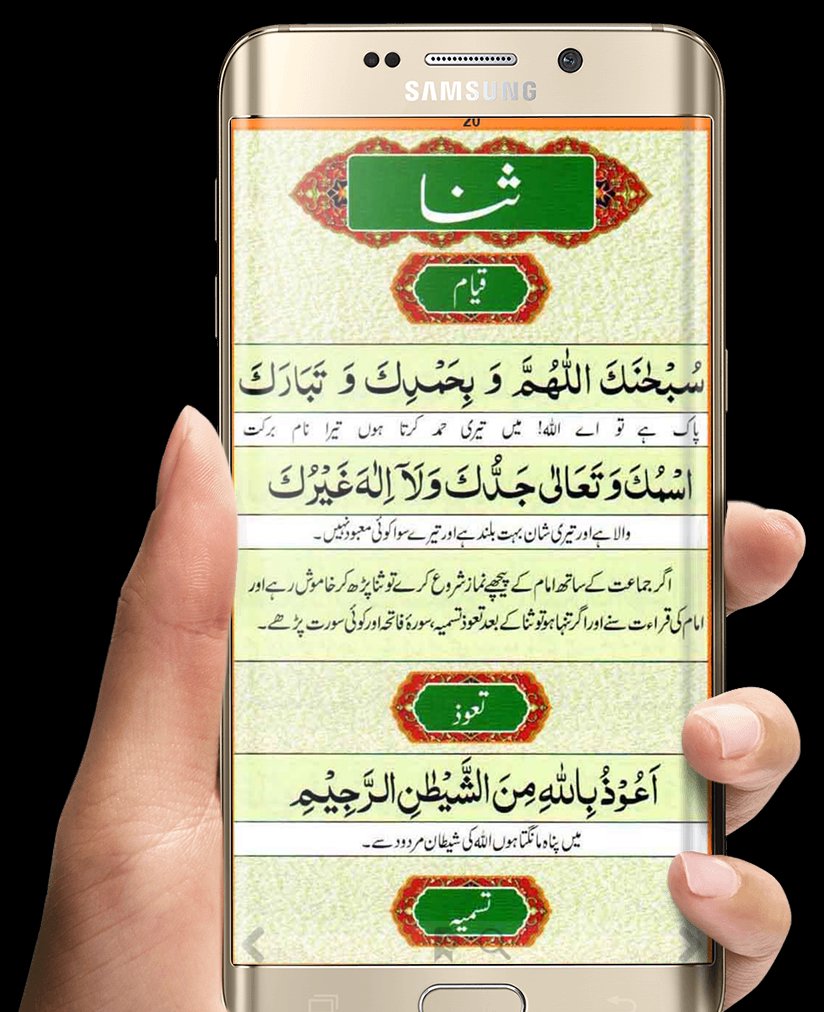 SAMSUNG
20
ثنا
قیام
سُبْحٰنَكَ اللّٰهُمَّ وَ بِحَمْدِكَ وَ تَبَارَكَ
پاک ہے تو اے اللہ! میں تیری حمد کرتا ہوں تیرا نام برکت
اسْمُكَ وَ تَعَالٰى جَدُّكَ وَلَآ اِلٰهَ غَيْرُكَ
والا ہے اور تیری شان بہت بلند ہے اور تیرے سوا کوئی معبود نہیں۔
اگر جماعت کے ساتھ امام کے پیچھے نماز شروع کرے تو ثنا پڑھ کر خاموش رہے اور
امام کی قراءت سنے اور اگر تنہا ہو تو ثنا کے بعد تعوذ تسمیہ، سورۂ فاتحہ اور کوئی سورت پڑھے۔
تعوذ
اَعُوْذُ بِاللّٰهِ مِنَ الشَّيْطٰنِ الرَّجِيْمِ
میں پناہ مانگتا ہوں اللہ کی شیطان مردود سے۔
تسمیہ